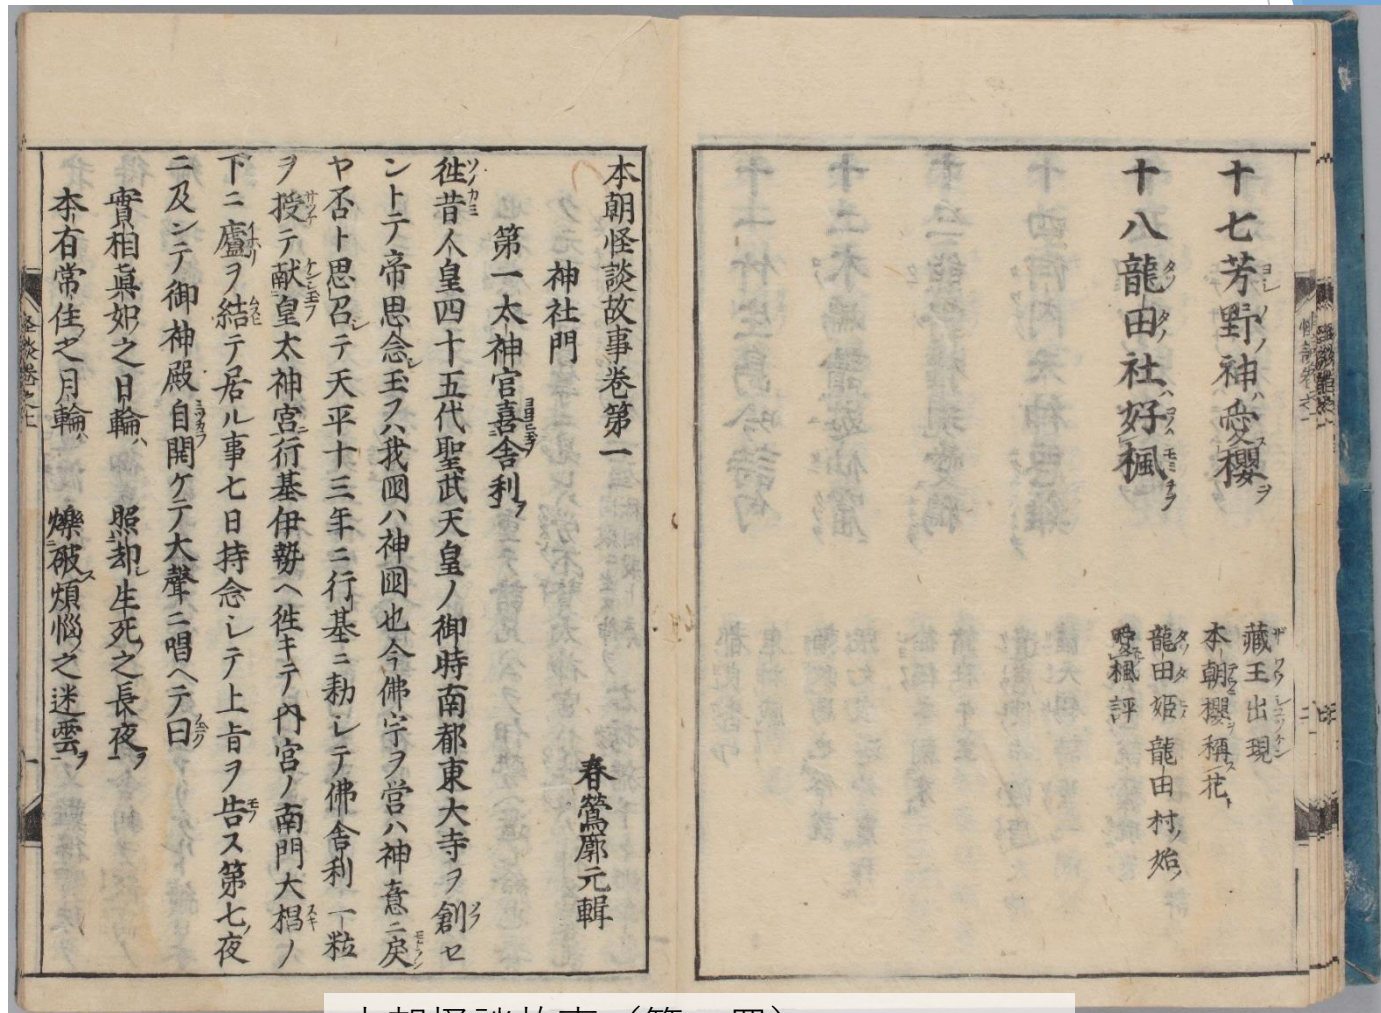 十七芳野神愛櫻
藏王出現
本朝櫻稱花
十八龍田社好楓
龍田姫龍田村ノ始
愛楓評
本朝怪談故事巻第一
春鶯廓元輯
神社門
第一太神宮喜舎利
徃昔人皇四十五代聖武天皇ノ御時南都東大寺ヲ創セ
ントテ帝思念シ玉フハ我國ハ神國也今佛宇ヲ営ハ神意ニ戾
ヤ否ト思召テ天平十三年ニ行基ニ勅シテ佛舎利一粒
ヲ授テ献皇太神宮行基伊勢ヘ徃キテ内宮ノ南門大椙ノ
下ニ廬ヲ結テ居ル事七日持念シテ上旨ヲ告ス第七ノ夜
ニ及ンテ御神殿自開ケテ大聲ニ唱ヘテ曰
實相眞如之日輪ハ照却シ生死之長夜ヲ
本有常住之月輪ハ爍破ス煩惱之迷雲ヲ